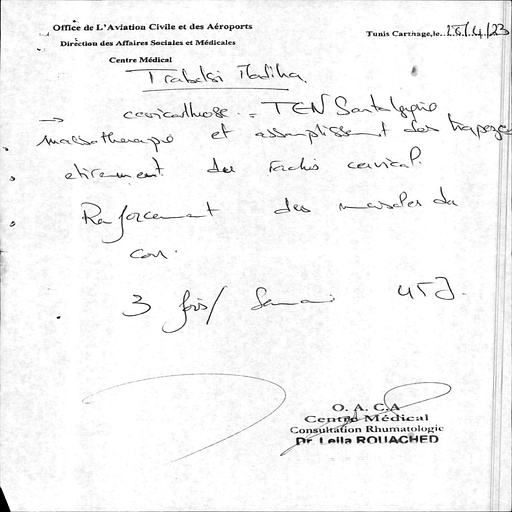 Office de L'Aviation Civile et des Aéroports
Direction des Affaires Sociales et Médicales
Centre Médical
Tunis Carthage,le..26/4/23
Trabelsi Madiha
→ cervicarthrose = TEN Santalgique
massotherapie et assouplissement des trapezes
etirement du rachis cervical.
Renforcement des muscles du
cou.
3 fois/ Semai 45J.
O. A. C.A
Centre Médical
Consultation Rhumatologie
Dr Leila ROUACHED